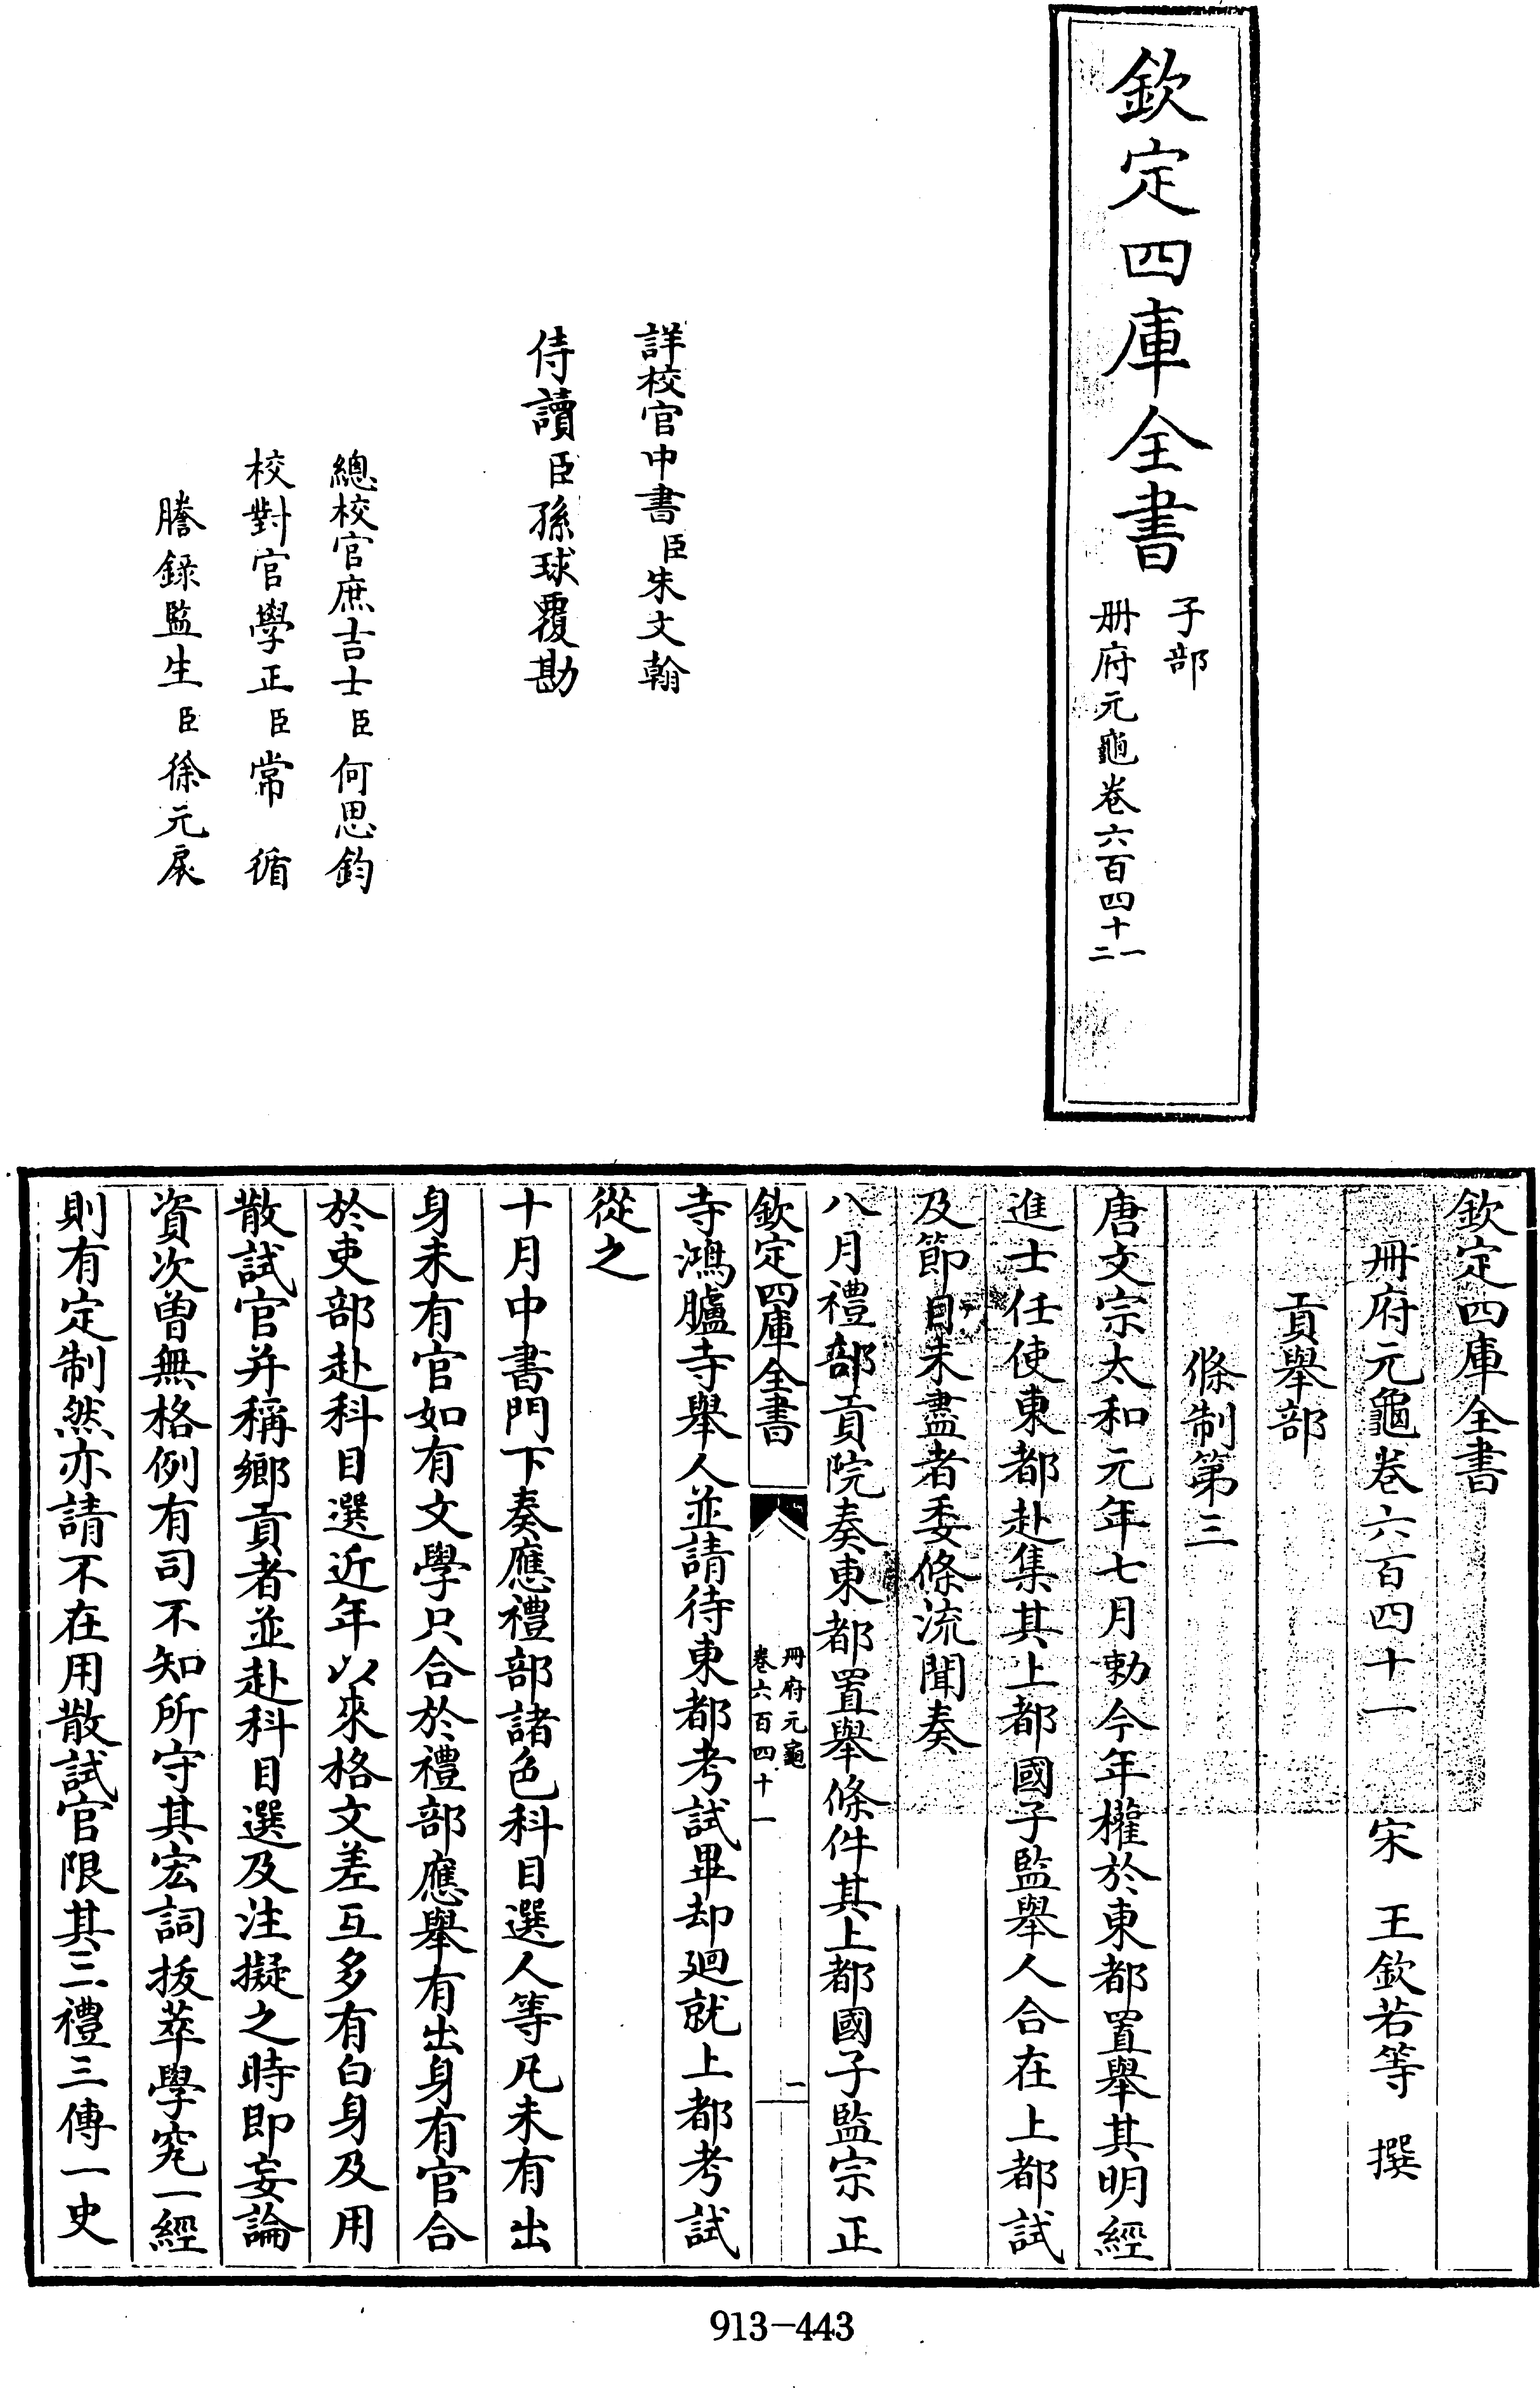 欽定四庫全書
子部
冊府元龜卷六百四十一
二
詳校官中書臣朱文翰
侍讀臣孫球覆勘
總校官庶吉士臣何思鈞
校對官學正臣常循
謄錄監生臣徐元
欽定四庫全書
冊府元龜卷六百四十一 宋 王欽若等 撰
貢舉部
條制第三
唐文宗太和元年七月勅今年權於東都置舉其明經
進士任使東都赴集其上都國子監舉人合在上都試
及節目未盡者委條流聞奏
八月禮部貢院奏東都置舉條件其上都國子監宗正
欽定四庫全書
冊府元龜
卷六百四十一
一
寺鴻臚寺舉人並請待東都考試畢却廻就上都考試
從之
十月中書門下奏應禮部諸色科目選人等凡未有出
身未有官如有文學只合於禮部應舉有出身有官合
於吏部赴科目選近年以來格文差互多有白身及用
散試官并稱鄉貢者並赴科目選及注擬之時即妄論
資次曾無格例有司不知所守其宏詞拔萃學究一經
則有定制然亦請不在用散試官限其三禮三傳一史
913-443